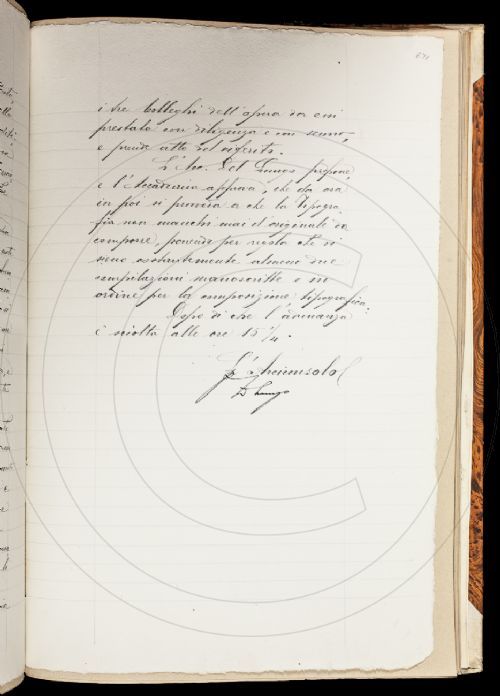 i tre Colleghi dell'opera da essi
prestata con diligenza e con senno,
e prende atto del riferito.
L'Arc. Del Lungo propone
e l'Accademia approva, che da ora
in poi si provveda a che la tipogra-
fia non manchi mai d'originale da
comporre, ponendo per regola che vi
siano costantemente almeno due
compilazioni manoscritte e in
ordine per la composizione tipografica.
Dopo di che l'adunanza
è sciolta alle ore 15 1/4.
L'Arciconsolo
D Lungo